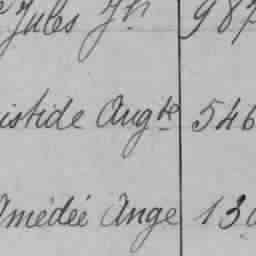 Jules Jh 987
istide Augte 546
Amédée Ange 130